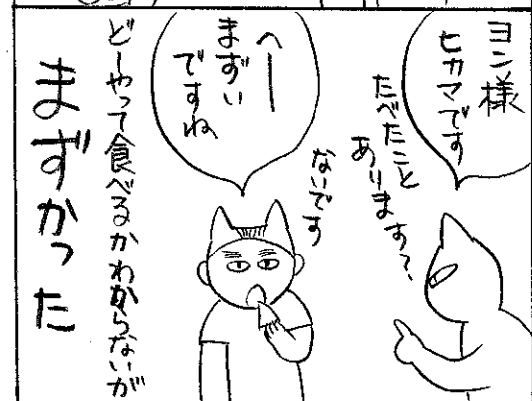 ヨン様
ヒカマです
たべたこと
あります?
ないです
へー
まずい
ですね
どーやって食べるかわからないが
まずかった